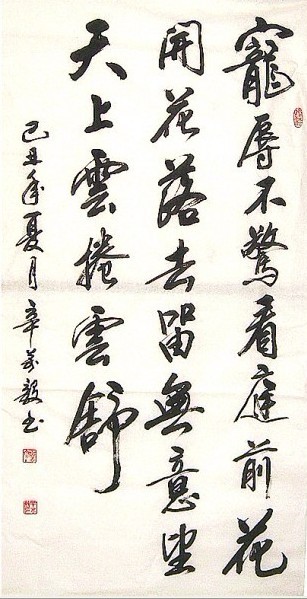 寵辱不驚看庭前花
開花落去留無意望
天上雲捲雲舒
己丑年夏月章益毅书